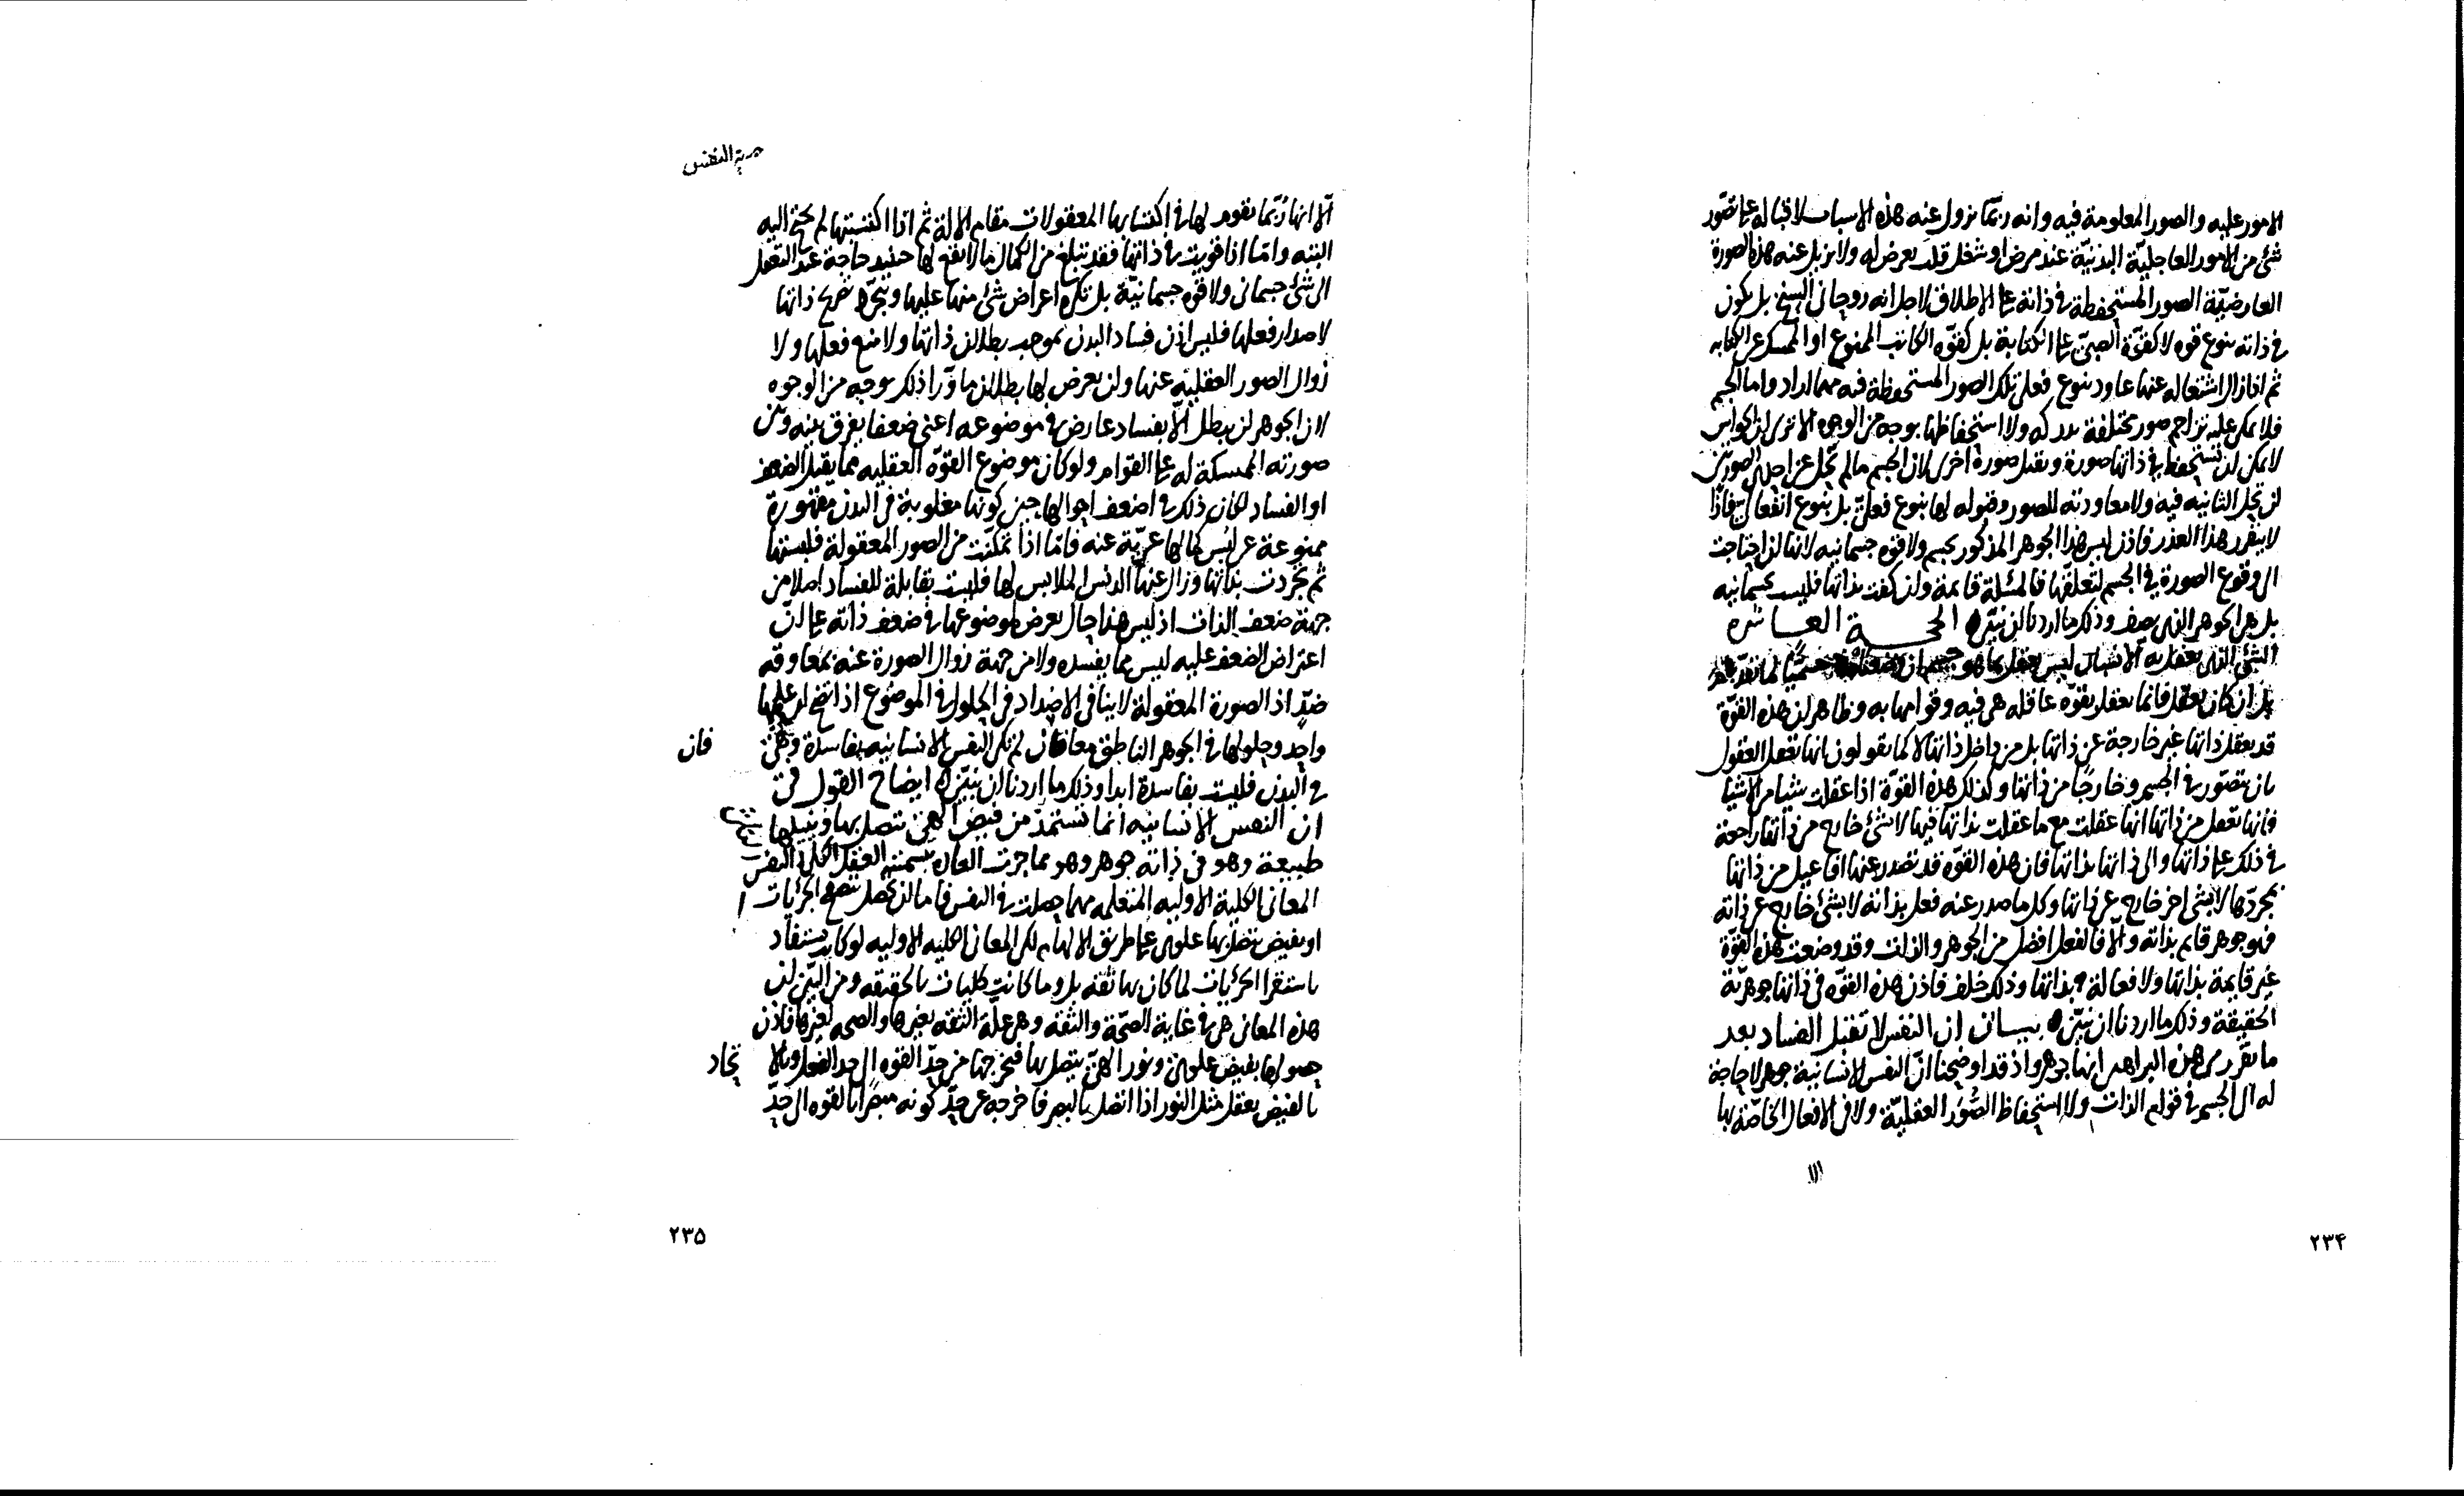 الامور عليه والصور المعلومة فيه وانه ربما تزول عنه هذه الاسباب لاقباله على تصور
شئ من الامور العاجلية البدنية عند مرض او شغل قلب يعرض له ولا تزيل عنه هذه الصورة
العارضية الصور المستحفظة في ذاته على الاطلاق لاجل انه روحاني السنخ بل يكون
في ذاته بنوع قوه لا كقوة الصبي على الكتابة بل كقوه الكاتب الممنوع او الممسك عن الكتابه
ثم اذا زال اشتغاله عنها عاود بنوع فعلي تلك الصور المستحفظة فيه مهما اراد واما الجسم
فلا يمكن عليه تزاحم صور مختلفة مدركه ولا استحفاظها بوجه من الوجوه الا ترى ان الحواس
لا يمكن ان تستحفظ في ذاتها صورة وتقبل صورة اخرى لان الجسم ما لم تخل عن احدى الصورتين
لن تحل الثانيه فيه ولا معاودته للصور وقبوله لها بنوع فعلي بل بنوع انفعالي فاذا
لا يتقرر هذا العذر فاذن ليس هذا الجوهر المذكور بجسم ولا قوه جسمانيه لانها ان احتاجت
الى وقوع الصورة في الجسم لتعلقها فالمسئلة قايمة وان كفت بذاتها فليست بجسمانيه
بل هي الجوهر الذي يصف وذلك ما اردنا ان نبين الحجة العاشره
الشئ الذي يعقل به الانسان ليس يعقل بما هو جسم
بل ان كان يعقل فانما يعقل بقوه عاقله هي فيه وقوامها به وظاهر ان هذه القوة
قد يعقل ذاتها غير خارجة عن ذاتها بل من داخل ذاتها لا كما يقولون انها تعقل العقول
بان يتصور في الجسم وخارجا من ذاتها وكذلك هذه القوة اذا عقلت شيئا من الاشيا
فانها تعقل من ذاتها انها عقلت مع ما عقلت بذاتها فيها لا بشئ خارج من ذاتها راجعة
في ذلك على ذاتها والى ذاتها بذاتها فان هذه القوه قد تصدر عنها افاعيل من ذاتها
بمجردها لا بشئ اخر خارج عن ذاتها وكل ما صدر عنه فعل بذاته لا بشئ خارج عن ذاته
فهو جوهر قايم بذاته والا فالفعل افضل من الجوهر والذات وقد وضعت هذه القوة
غير قايمة بذاتها ولا فعالة بذاتها وذلك خلف فاذن هذه القوه في ذاتها جوهرية
الحقيقة وذلك ما اردنا ان نبين بيان ان النفس لا تقبل الفساد بعد
ما تقرر من هذه البراهين انها جوهر واذ قد اوضحنا ان النفس الانسانية جوهر لا حاجة
له الى الجسم في قوام الذات ولا استحفاظ الصور العقلية ولا في الافعال الخاصة بها
الا
۲۳۴
الا انها ربما يقوم لها في اكتسابها المعقولات مقام الالة ثم اذا اكتسبتها لم يحتج اليه
البته واما اذا قويت في ذاتها فقد تبلغ من الكمال ما لا يقع لها حينئذ حاجة عند التعقل
الى شئ جسماني ولا قوه جسمانية بل تكره اعراض شئ منها عليها وتتجرد ذاتها
لاصدار فعلها فليس اذن فساد البدن بموجب بطلان ذاتها ولا منع فعلها ولا
زوال الصور العقليه عنها ولن يعرض لها بطلان ما ورا ذلك بوجه من الوجوه
لان الجوهر لن يبطل الا بفساد عارض في موضوعه اعني ضعفا يفرق بينه وبين
صورته الممسكة له على القوام ولو كان موضوع القوة العقليه مما يقبل الضعف
او الفساد لكان ذلك في اضعف احوالها حين كونها مغلوبة في البدن مقهورة
ممنوعة عن لبس كمالها عرية عنه فاما اذا تمكنت من الصور المعقولة فلبستها
ثم تجردت بذاتها وزال عنها الدنس الملابس لها فليست بقابلة للفساد اصلا من
جهة ضعف الذات اذ ليس هذا حال يعرض لموضوعها في ضعف ذاته على ان
اعتراض الضعف عليه ليس مما يفسده ولا من جهة زوال الصورة عنه بمعاوقه
ضد اذ الصورة المعقولة لا ينافي الاضداد في الحلول في الموضوع اذ اتضح ان علمها
واحد وحلولها في الجوهر الناطق معا فان لم تكن النفس الانسانيه بفاسدة وهي
في البدن فليست بفاسدة ابدا وذلك ما اردنا ان نبين ايضاح القول في
ان النفس الانسانيه انما تستمد من فيض الهي تتصل بها وينيلها
طبيعة وهو في ذاته جوهر وهو مما جرت العادة بتسميته العقل الكلي النفس
المعاني الكلية الاوليه المتعلمه مهما حصلت في النفس فاما ان يحصل بتصفح الجزئيات
او بفيض يتصل بها علوي على طريق الالهام لكن المعاني الكليه الاوليه لو كانت تستفاد
باستقرا الجزئيات لما كان بها ثقه بل وما كانت كليات بالحقيقه ومن البين ان
هذه المعاني هي في غاية الصحة والثقة وهي علة الثقه بغيرها والصحه لغيرها فاذن
حصولها بفيض علوي ونور الهي يتصل بها فتخرجها من حد القوه الى حد الفعل وبالاتحاد
بالفيض يعقل مثل النور اذا اتصل بالبصر فاخرجه عن حد كونه مبصرا بالقوه الى حد
فان
۲۳۵